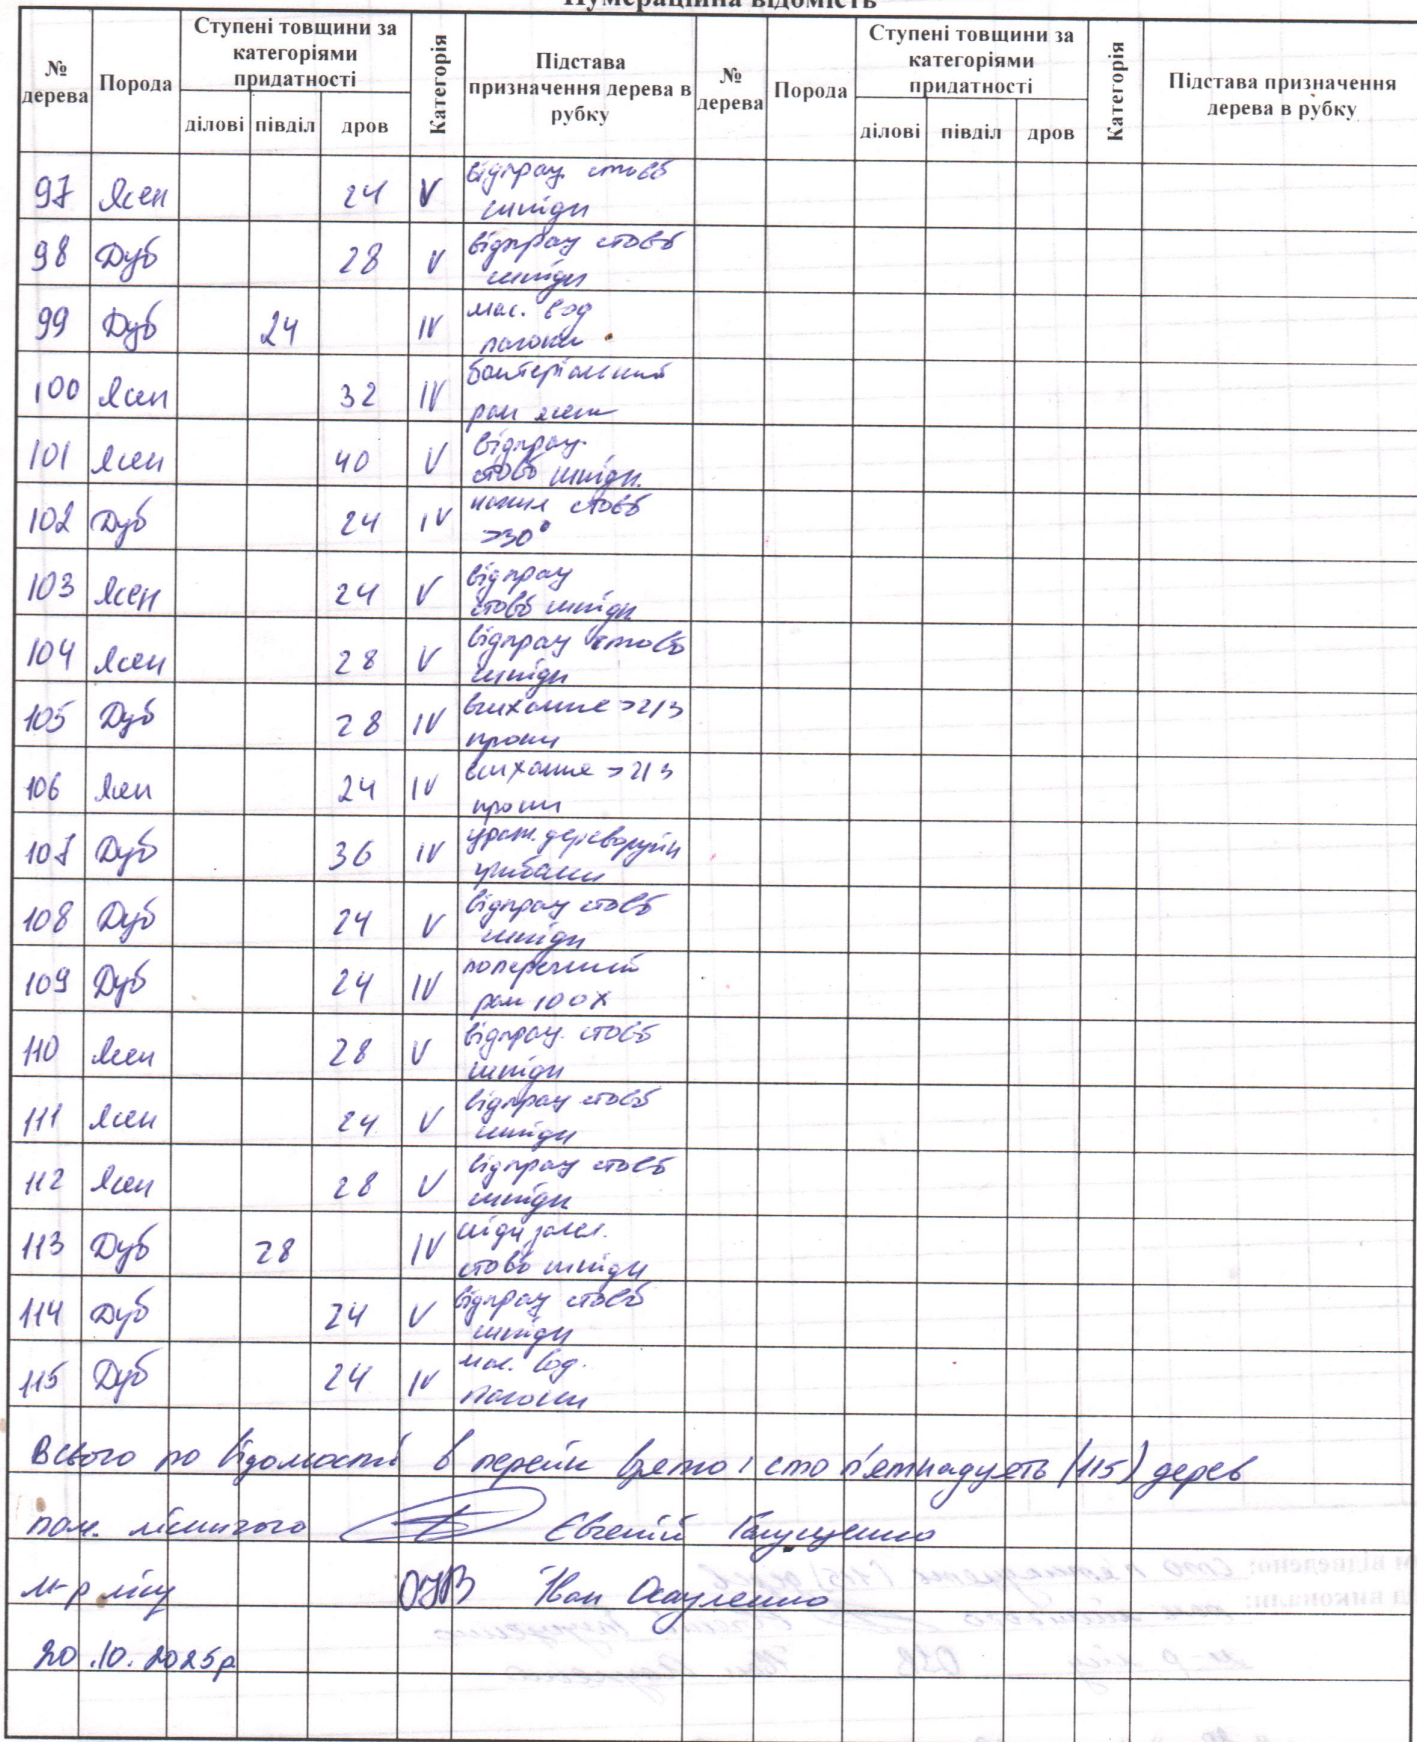 Нумераційна відомість
№ дерева Порода Ступені товщини за категоріями придатності Категорія Підстава призначення дерева в рубку № дерева Порода Ступені товщини за категоріями придатності Категорія Підстава призначення дерева в рубку
ділові півділ дров ділові півділ дров
97 Ясен 24 V відпрац стовб
шкідн
98 Дуб 28 V відпрац стовб
шкідн
99 Дуб 24 IV мас. вод
пагони
100 Ясен 32 IV бактеріальний
рак ясен
101 Ясен 40 V відпрац.
стовб шкідн.
102 Дуб 24 IV нахил стовб
>30°
103 Ясен 24 V відпрац
стовб шкідн
104 Ясен 28 V відпрац стовб
шкідн
105 Дуб 28 IV всихання >2/3
крони
106 Ясен 24 IV всихання >2/3
крони
107 Дуб 36 IV ураж. дереворуйн
грибами
108 Дуб 24 V відпрац стовб
шкідн
109 Дуб 24 IV поперечний
рак
110 Ясен 28 V відпрац. стовб
шкідн
111 Ясен 24 V відпрац стовб
шкідн
112 Ясен 28 V відпрац стовб
шкідн
113 Дуб 28 IV
стовб шкідн
114 Дуб 24 V відпрац стовб
шкідн
115 Дуб 24 IV мас. вод.
пагони
Всього по відомості в перелік взято: сто п'ятнадцять (115) дерев
пом. лісничого Євгеній Галущенко
м-р лісу Іван Осауленко
20.10.2025р